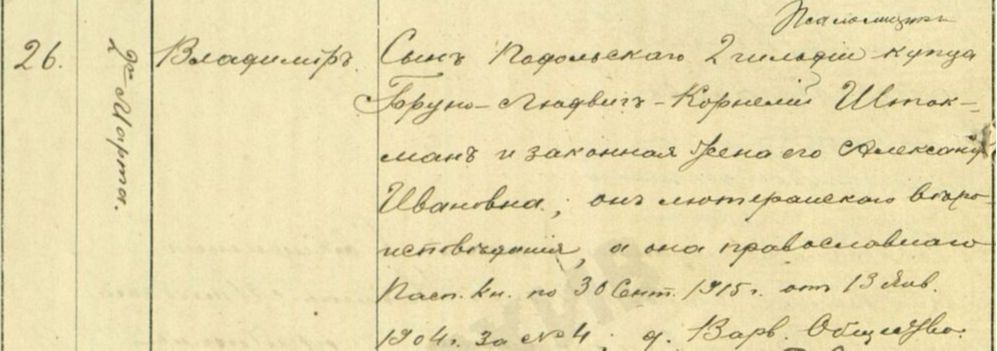 26.
2го Марта.
Владимiръ.
Сынъ Подольскаго 2 гильдiи купца
Бруно-Людвигъ-Корнелiй Шток-
манъ и законная жена его Александра
Ивановна; онъ лютеранскаго вѣро-
исповѣданiя, а она православнаго
Пасп. кн. по 30 Сент. 1915 г. отъ 13 Янв.
1904 г. за № 4. д. Варв. Общества.